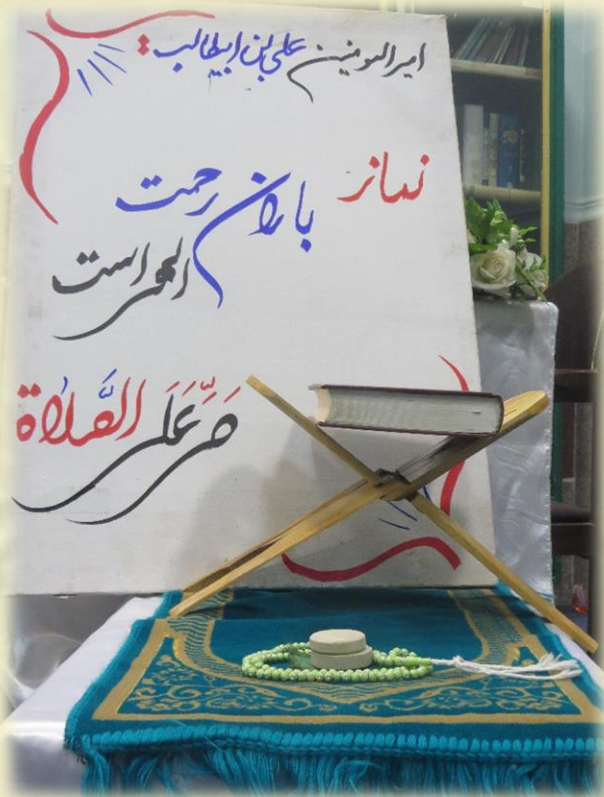 امیرالمومنین علی بن ابیطالب :
نماز
باران رحمت
الهی است
حَیِّ عَلَی الصَّلاة